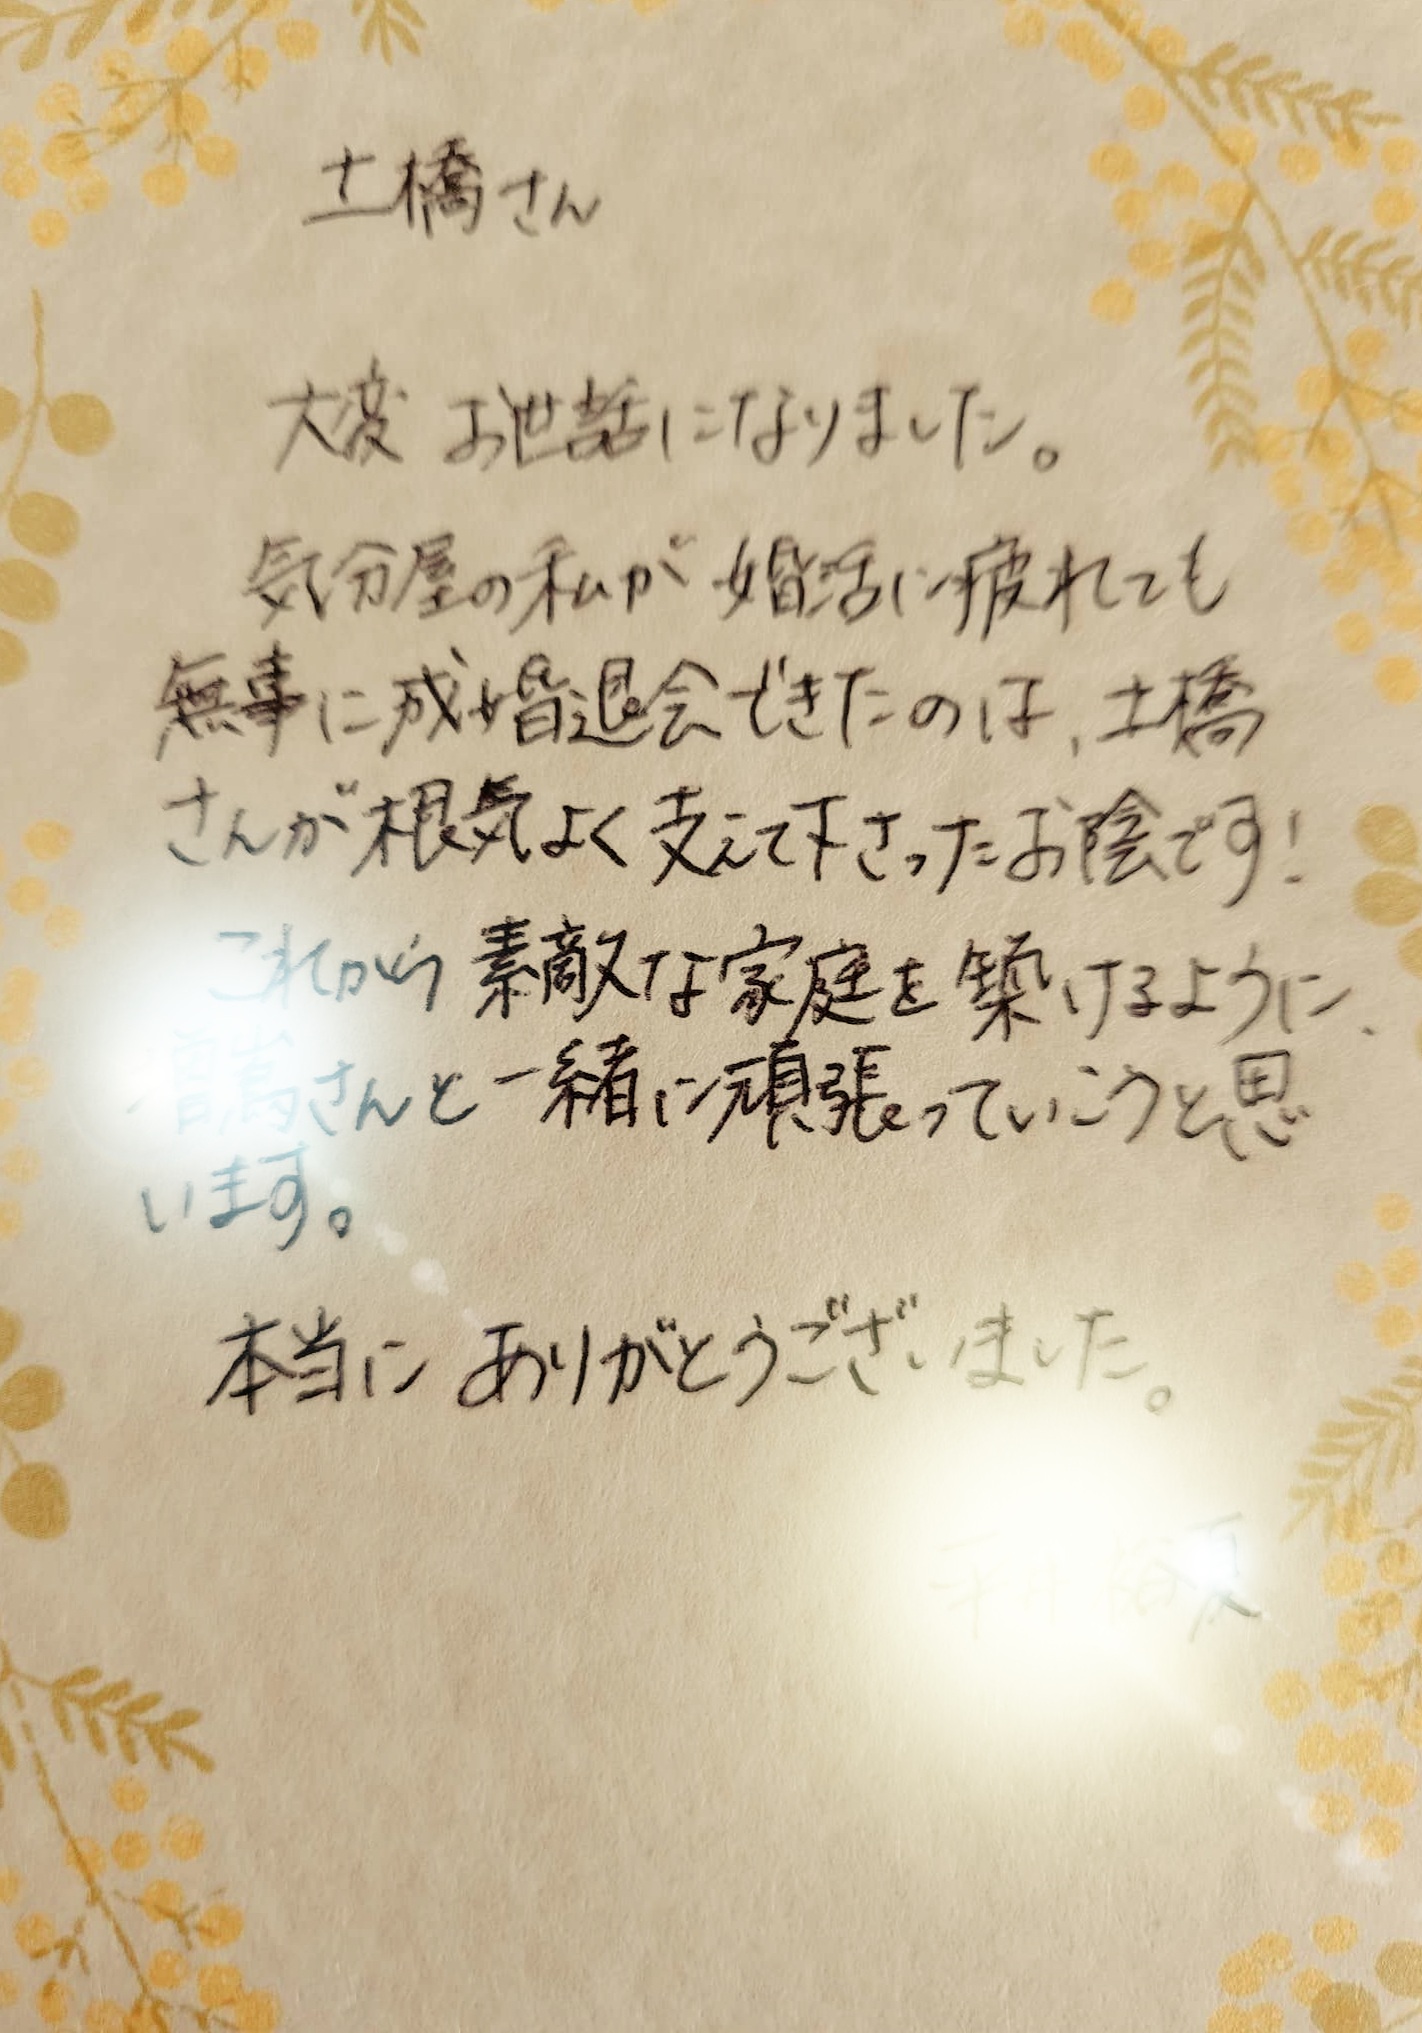 土橋さん
大変 お世話になりました。
気分屋の私が 婚活に疲れても
無事に成婚退会できたのは、土橋
さんが根気よく支えて下さったお陰です!
これから 素敵な家庭を築けるように、
さんと一緒に頑張っていこうと思
います。
本当に ありがとうございました。